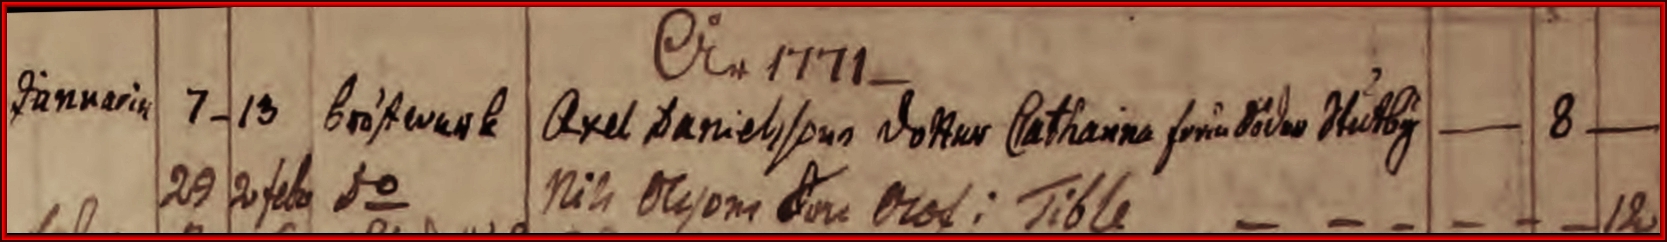 År 1771
Januarii 7 13 bröstwerk Axel Danielssons dotter Catharina från Söder Hutby 8
29 2 feb do Nils Olsons Son Olof i Tible 12